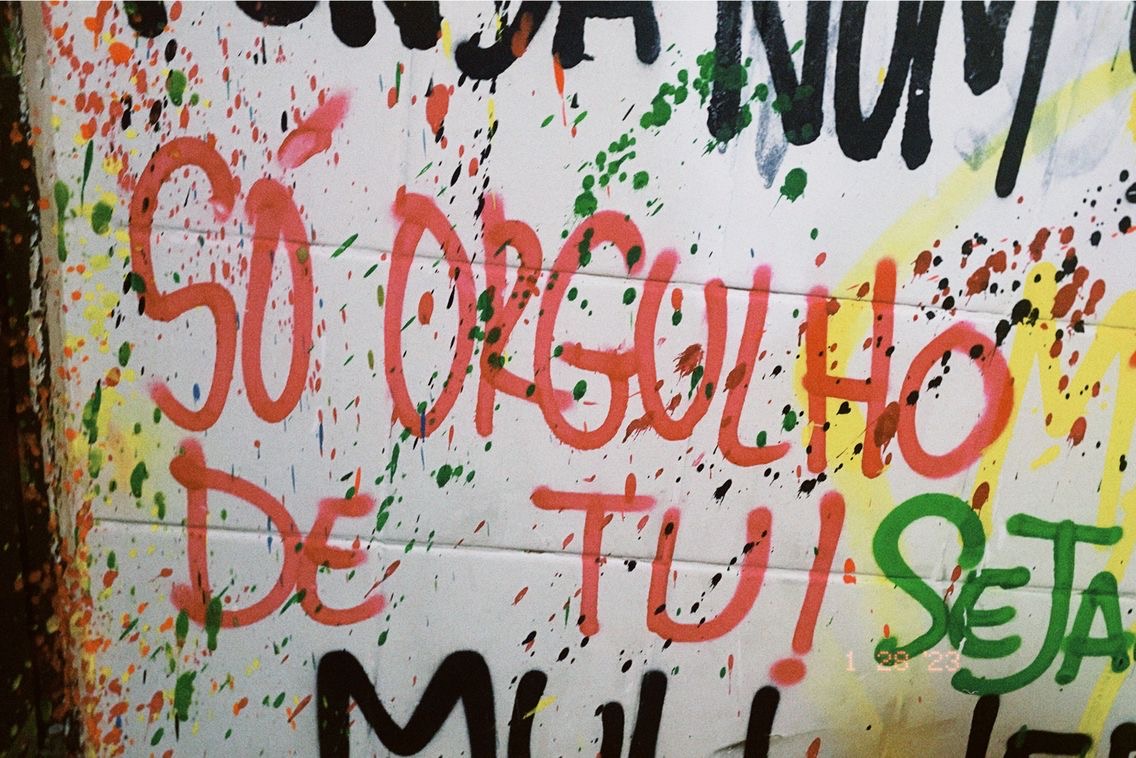 NUM
SÓ ORGULHO
DE TU!
SEJA
1 29 '23